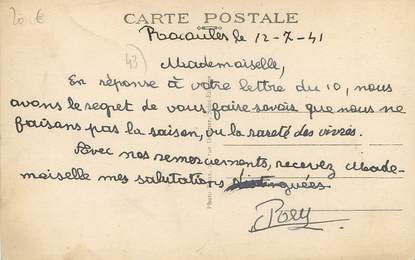 20 €
CARTE POSTALE
le 12-7-41
43
Mademoiselle,
En réponse à votre lettre du 10, nous
avons le regret de vous faire savoir que nous ne
faisons pas la saison, vu la rareté des vivres.
Avec nos remerciements, recevez Made-
moiselle mes salutations distinguées